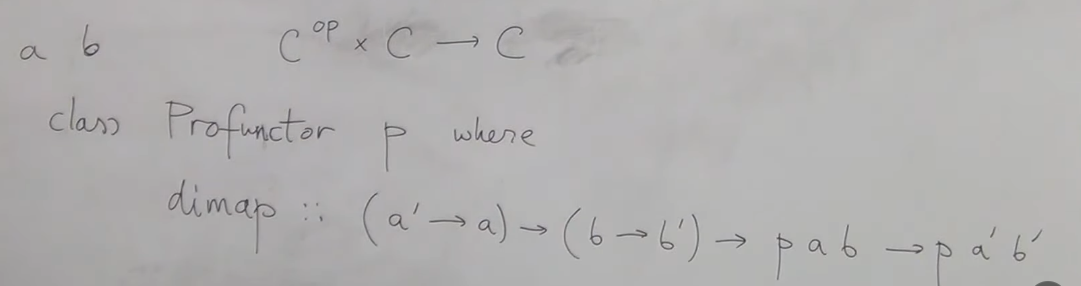 a b C^op × C → C
class Profunctor p where
dimap :: (a' → a) → (b → b') → p a b → p a' b'